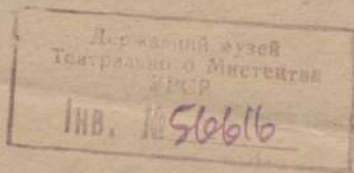 Державний музей
Театрального Мистецтва
УРСР
Інв. № 56616